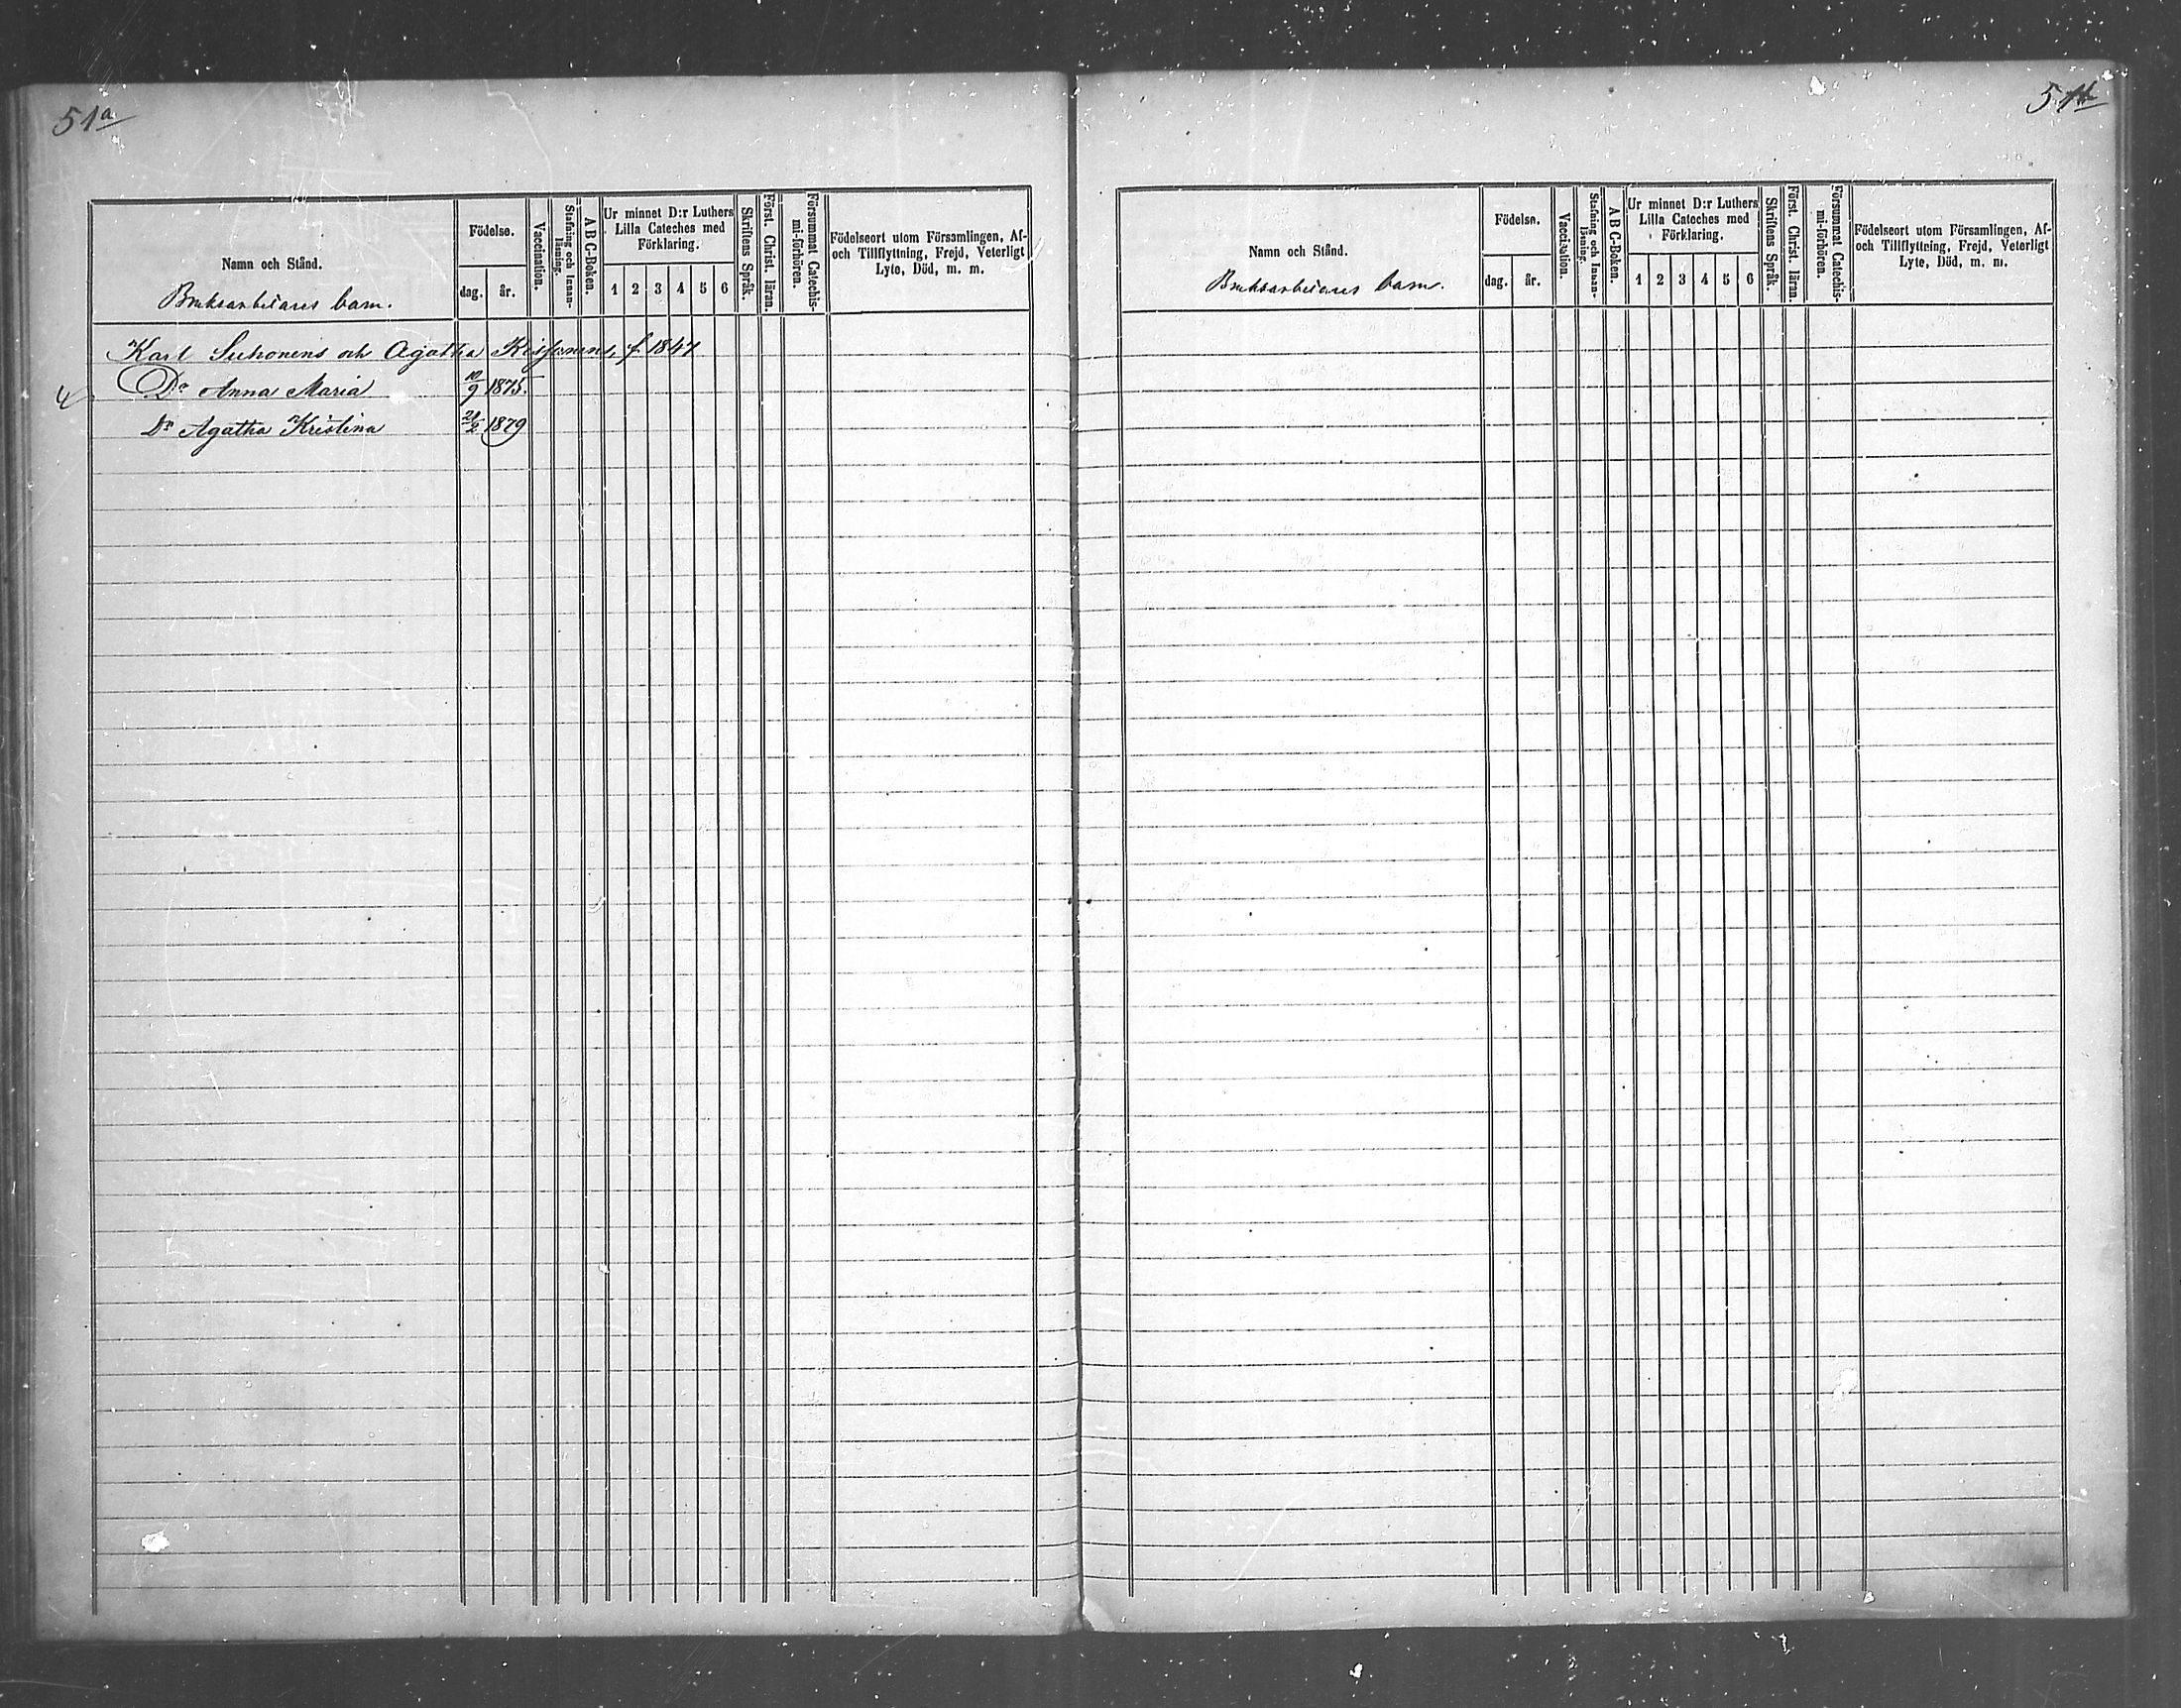 51a
Namn och Stånd.
Bruksarbetares barn.
Födelse.
dag.
år.
Vaccination.
Stafning och Innan-
läsning.
A B C-Boken.
Ur minnet D:r Luthers
Lilla Cateches med
Förklaring.
1 2 3 4 5 6
Skriftens Språk.
Först. Christ. läran.
Försummat Catechis-
mi-förhören.
Födelseort utom Församlingen, Af-
och Tillflyttning, Frejd, Veterligt
Lyte, Död, m. m.
Karl Suhonens och Agatha f 1847
Dr Anna Maria 10/9 1875.
Dr Agatha Kristina 21/2 1879
51b
Namn och Stånd.
Bruksarbetares barn.
Födelse.
dag.
år.
Vaccination.
Stafning och Innan-
läsning.
A B C-Boken.
Ur minnet D:r Luthers
Lilla Cateches med
Förklaring.
1 2 3 4 5 6
Skriftens Språk.
Först. Christ. läran.
Försummat Catechis-
mi-förhören.
Födelseort utom Församlingen, Af-
och Tillflyttning, Frejd, Veterligt
Lyte, Död, m. m.